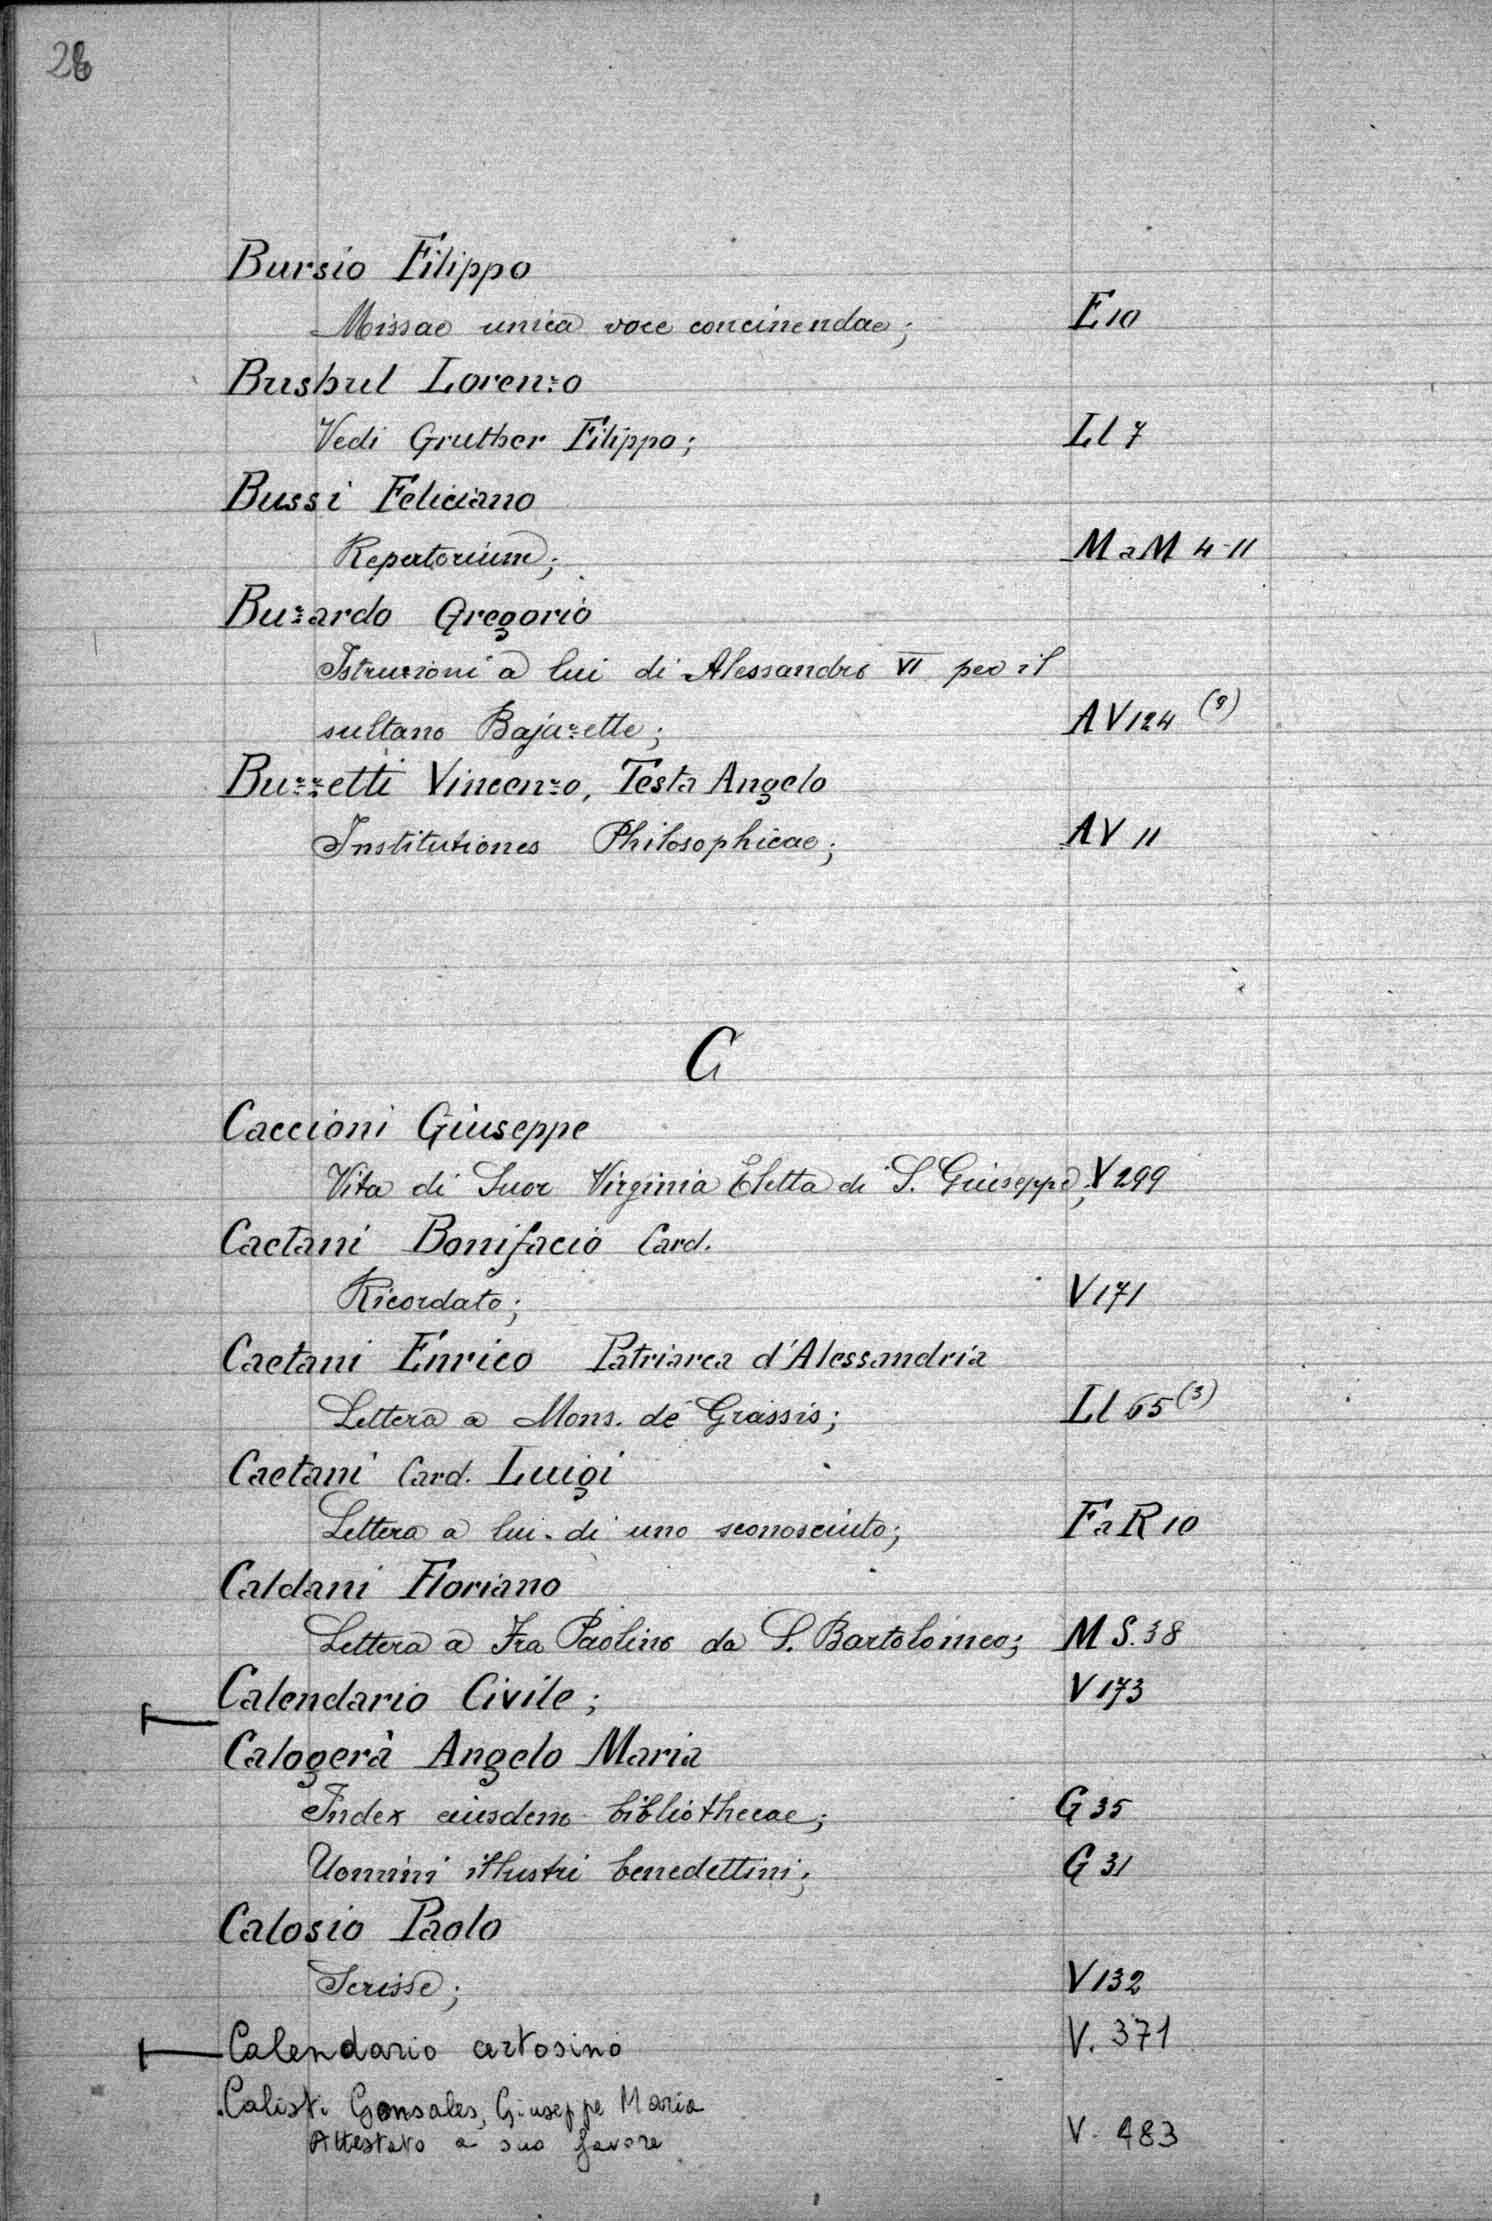 28
Bursio Filippo
Missae unica voce concinendae; E 10
Busbul Lorenzo
Vedi Gruther Filippo; Ll 7
Bussi Feliciano
Repertorium; M a M 4-11
Buzardo Gregorio
Istruzioni a lui di Alessandro VI per il
sultano Bajazette; A V 124 (9)
Buzzetti Vincenzo, Testa Angelo
Institutiones Philosophicae; A V 11
C
Caccioni Giuseppe
Vita di Suor Virginia Eletta di S. Giuseppe; V 299
Caetani Bonifacio Card.
Ricordato; V 171
Caetani Enrico Patriarca d'Alessandria
Lettera a Mons. de Grassis; Ll 65 (3)
Caetani Card. Luigi
Lettera a lui di uno sconosciuto; F a R 10
Caldani Floriano
Lettera a Fra Paolino da S. Bartolomeo; M S. 38
Calendario Civile; V 173
Calogerà Angelo Maria
Index eiusdem bibliothecae; G 35
Uomini illustri benedettini; G 31
Calosio Paolo
Scrisse; V 132
Calendario certosino V. 371
Calisti Gonsales, Giuseppe Maria
Attestato a suo favore V. 483